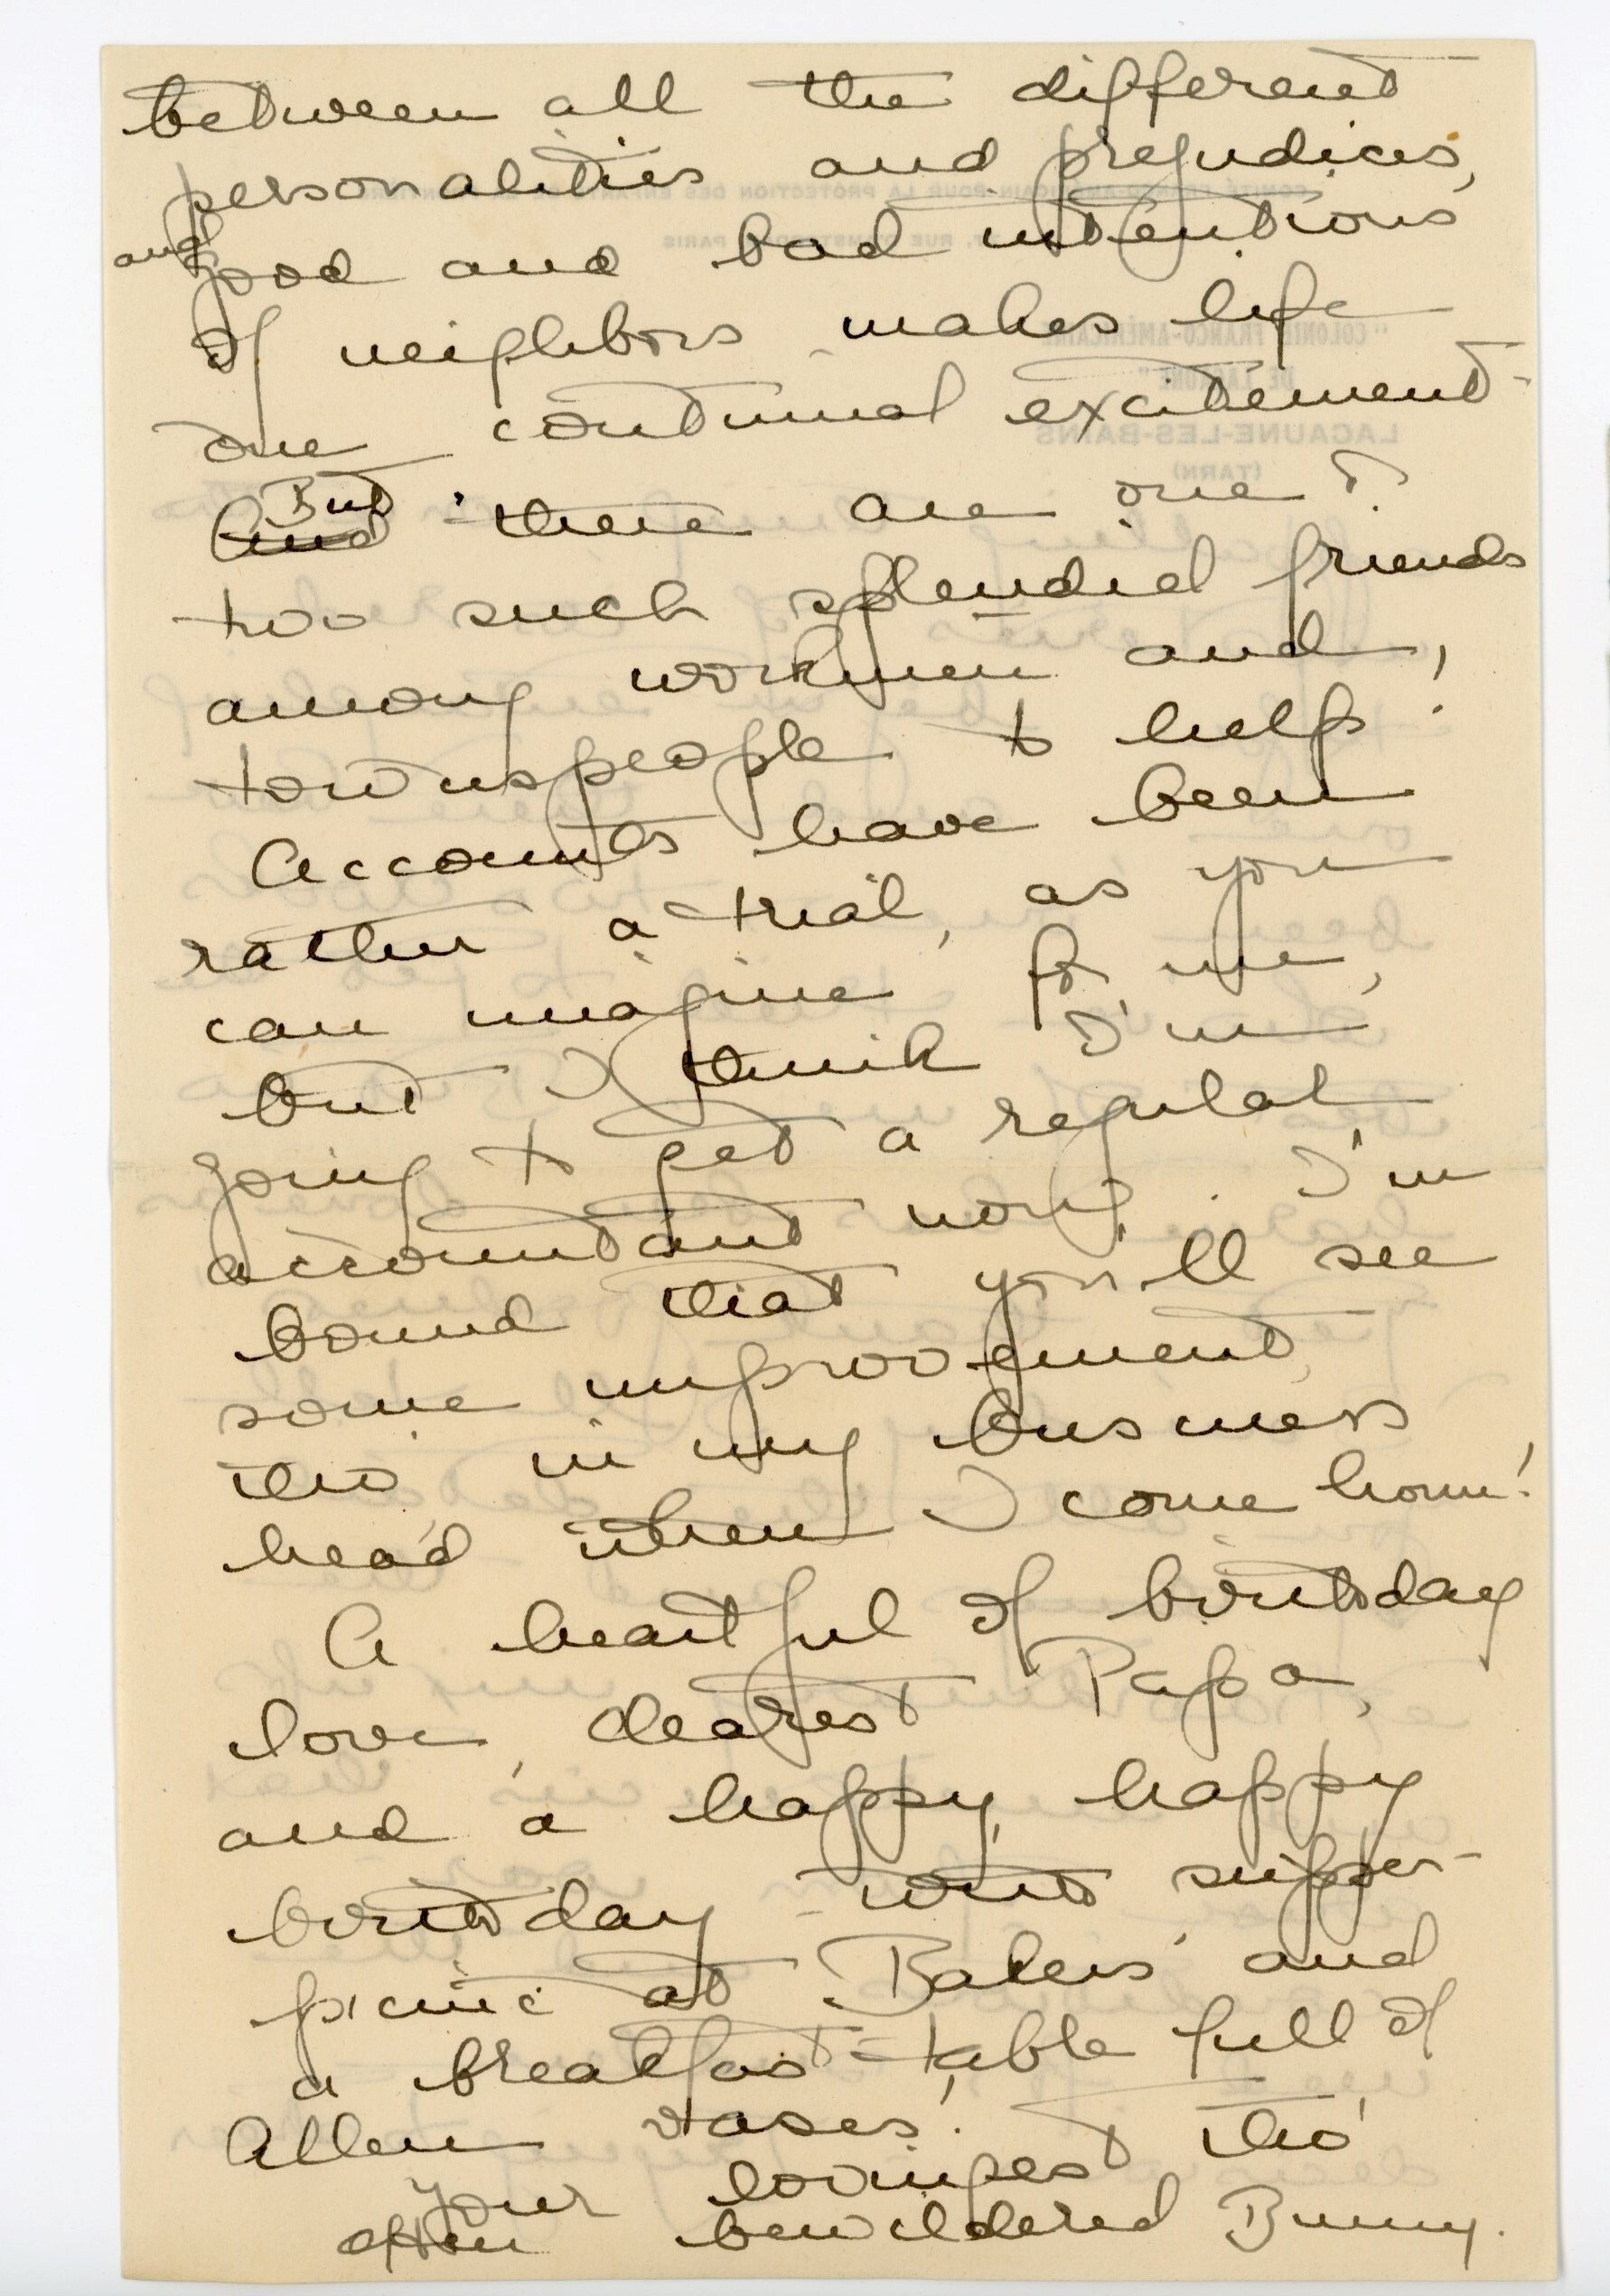 between all the different
personalities and prejudices,
and good and bad intentions
of neighbors makes life
one continual excitement -
And But there are one or
two such splendid friends
among workmen and
townspeople to help!
Accounts have been
rather a trial, as you
can imagine for me,
but I think I'm
going to get a regular
accountant now. I'm
bound that you'll see
some improvement,
tho' in my business
head when I come home!
A heartful of birthday
love, dearest Papa,
and a happy, happy
birthday with supper-
picnic at Bakers' and
a breakfast-table full of
Allen vases!
Your lovingest tho'
often bewildered Bunny.
COMITÉ FRANCO-AMÉRICAIN POUR LA PROTECTION DES ENFANTS
RUE PARIS
"COLONIE FRANCO-AMÉRICAINE
DE LACAUNE"
LACAUNE-LES-BAINS
(TARN)